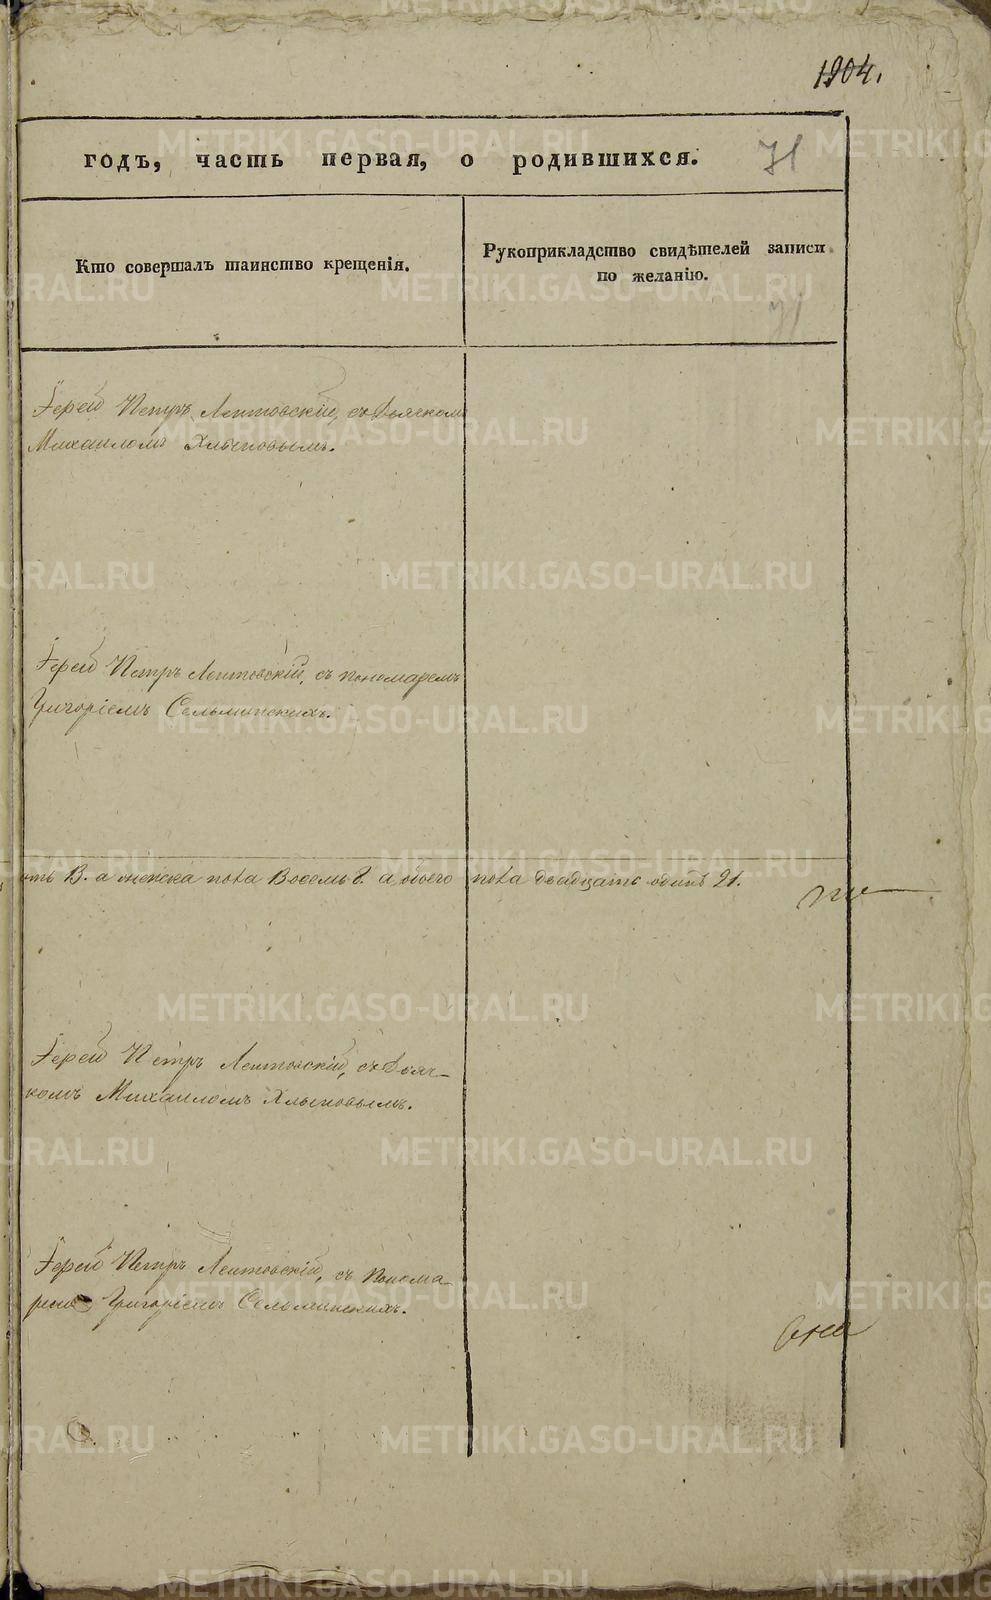 1904.
годъ, часть первая, о родившихся. 71
Кто совершалъ таинство крещенія.
Рукоприкладство свидѣтелей записи
по желанію.
71
Іерей Петръ Лептовскій, съ Дьячкомъ
Михаиломъ Хлыновымъ.
Іерей Петръ Лептовскій, съ пономаремъ
Григоріемъ Сельминскихъ.
ять 13. а женска пола Восемь 8. а обоего пола двадцать одинъ 21.
Іерей Петръ Лептовскій, съ Дьяч-
комъ Михаиломъ Хлыновымъ.
Іерей Петръ Лептовскій, съ Понома-
ремъ Григоріемъ Сельминскихъ.
METRIKI.GASO-URAL.RU